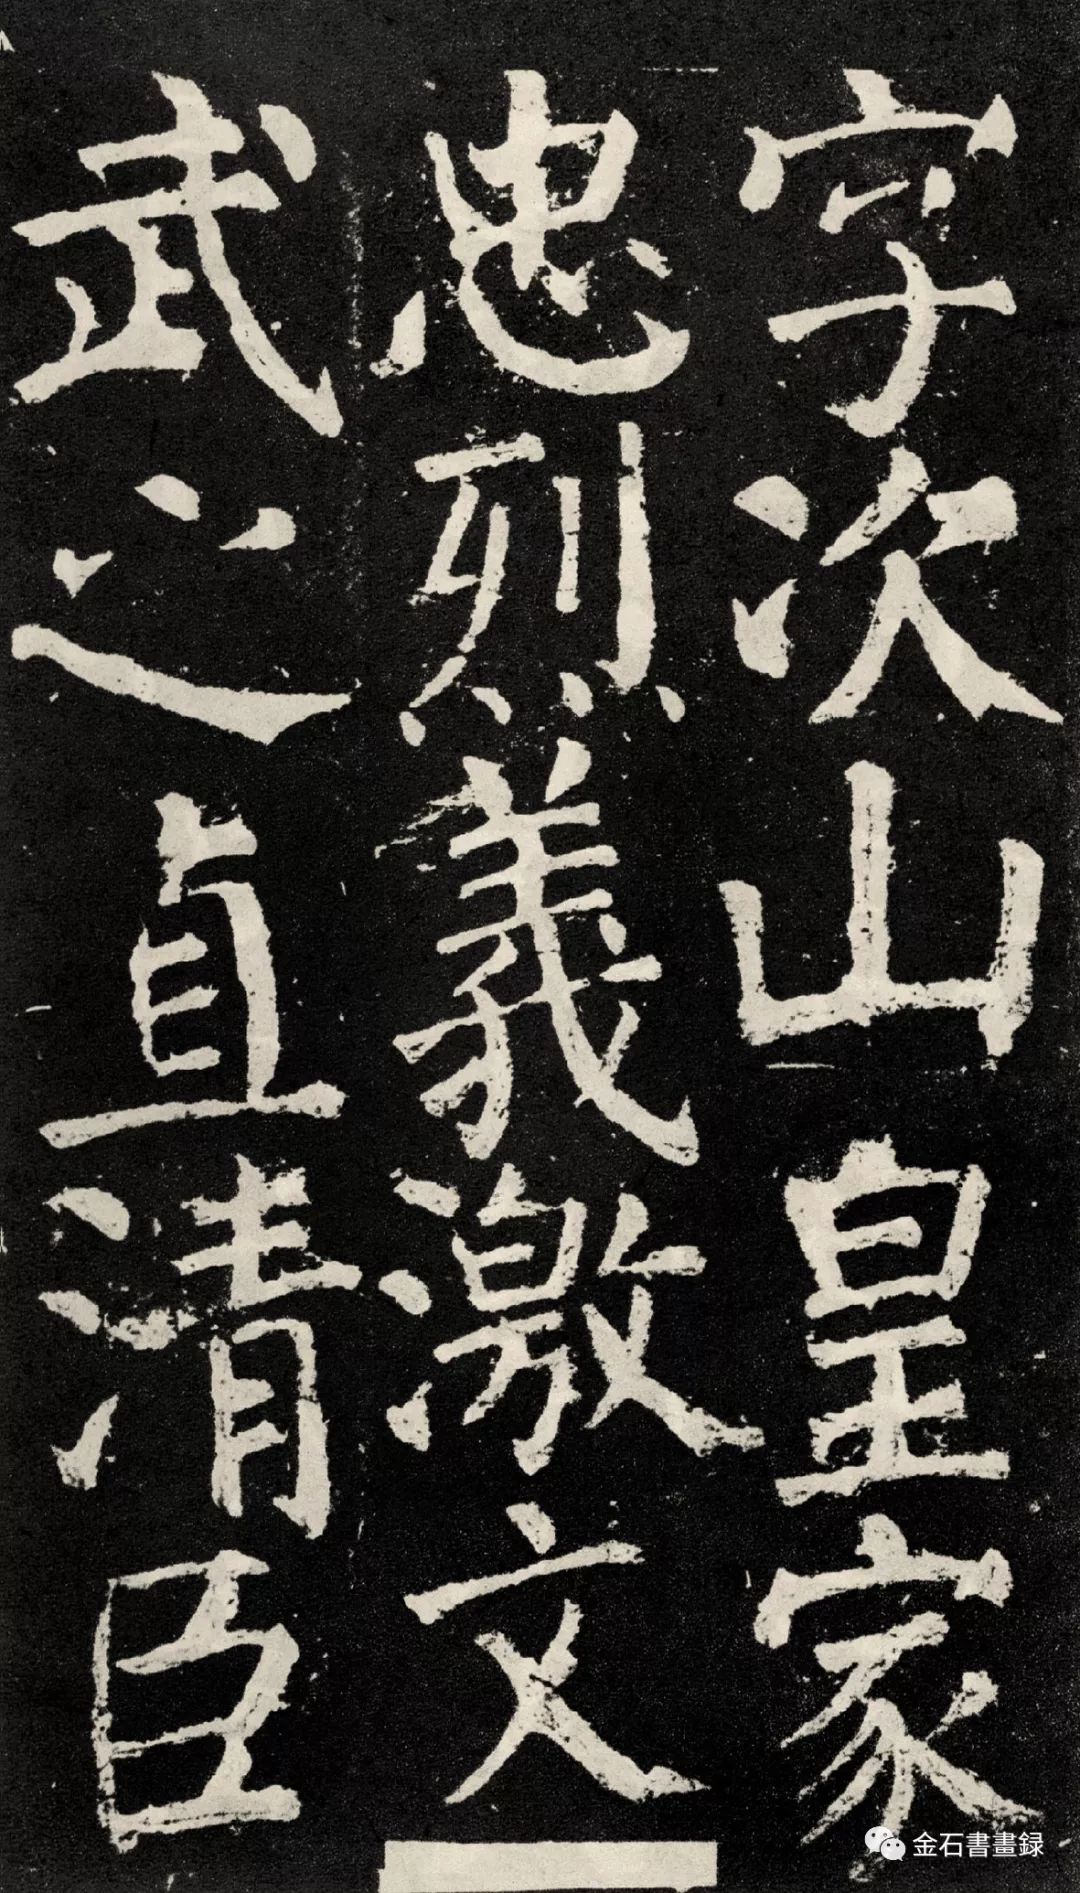 字次山皇家
忠烈義激文
武之直清臣
金石書畫録